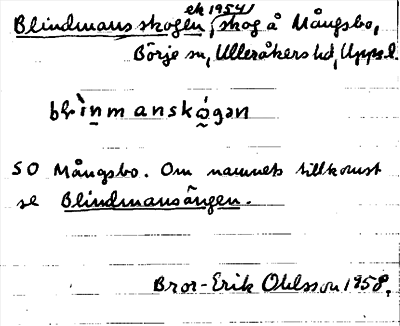 ek 1954
Blindmansskogen, skog å Mångsbo,
Börje sn, Ulleråkers hd, Upps.l.
SO Mångsbo. Om namnets tillkomst
se Blindmansängen.
Bror-Erik Ohlsson 1958.